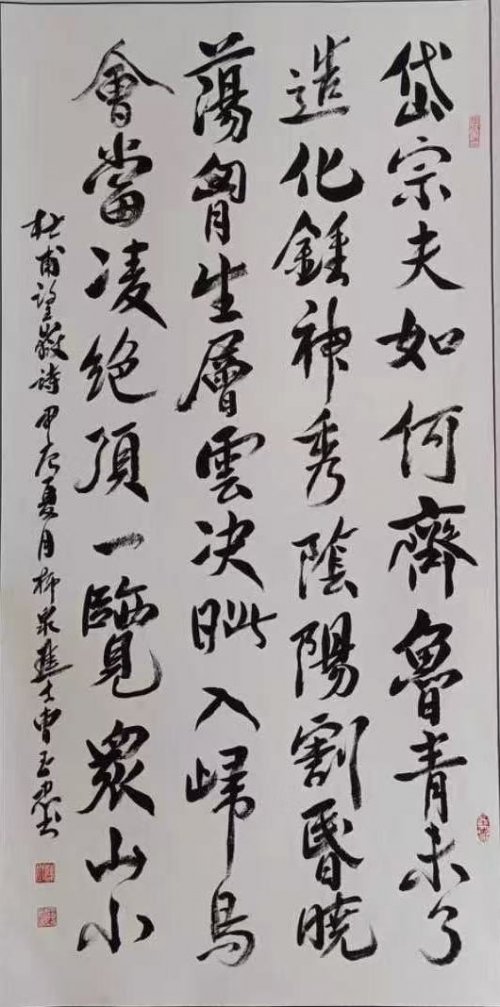 岱宗夫如何齊魯青未了
造化鍾神秀陰陽割昏曉
蕩胷生層雲決眦入歸鳥
會當凌绝頂一覽眾山小
杜甫望嶽詩甲辰夏月柳泉 曹玉 书